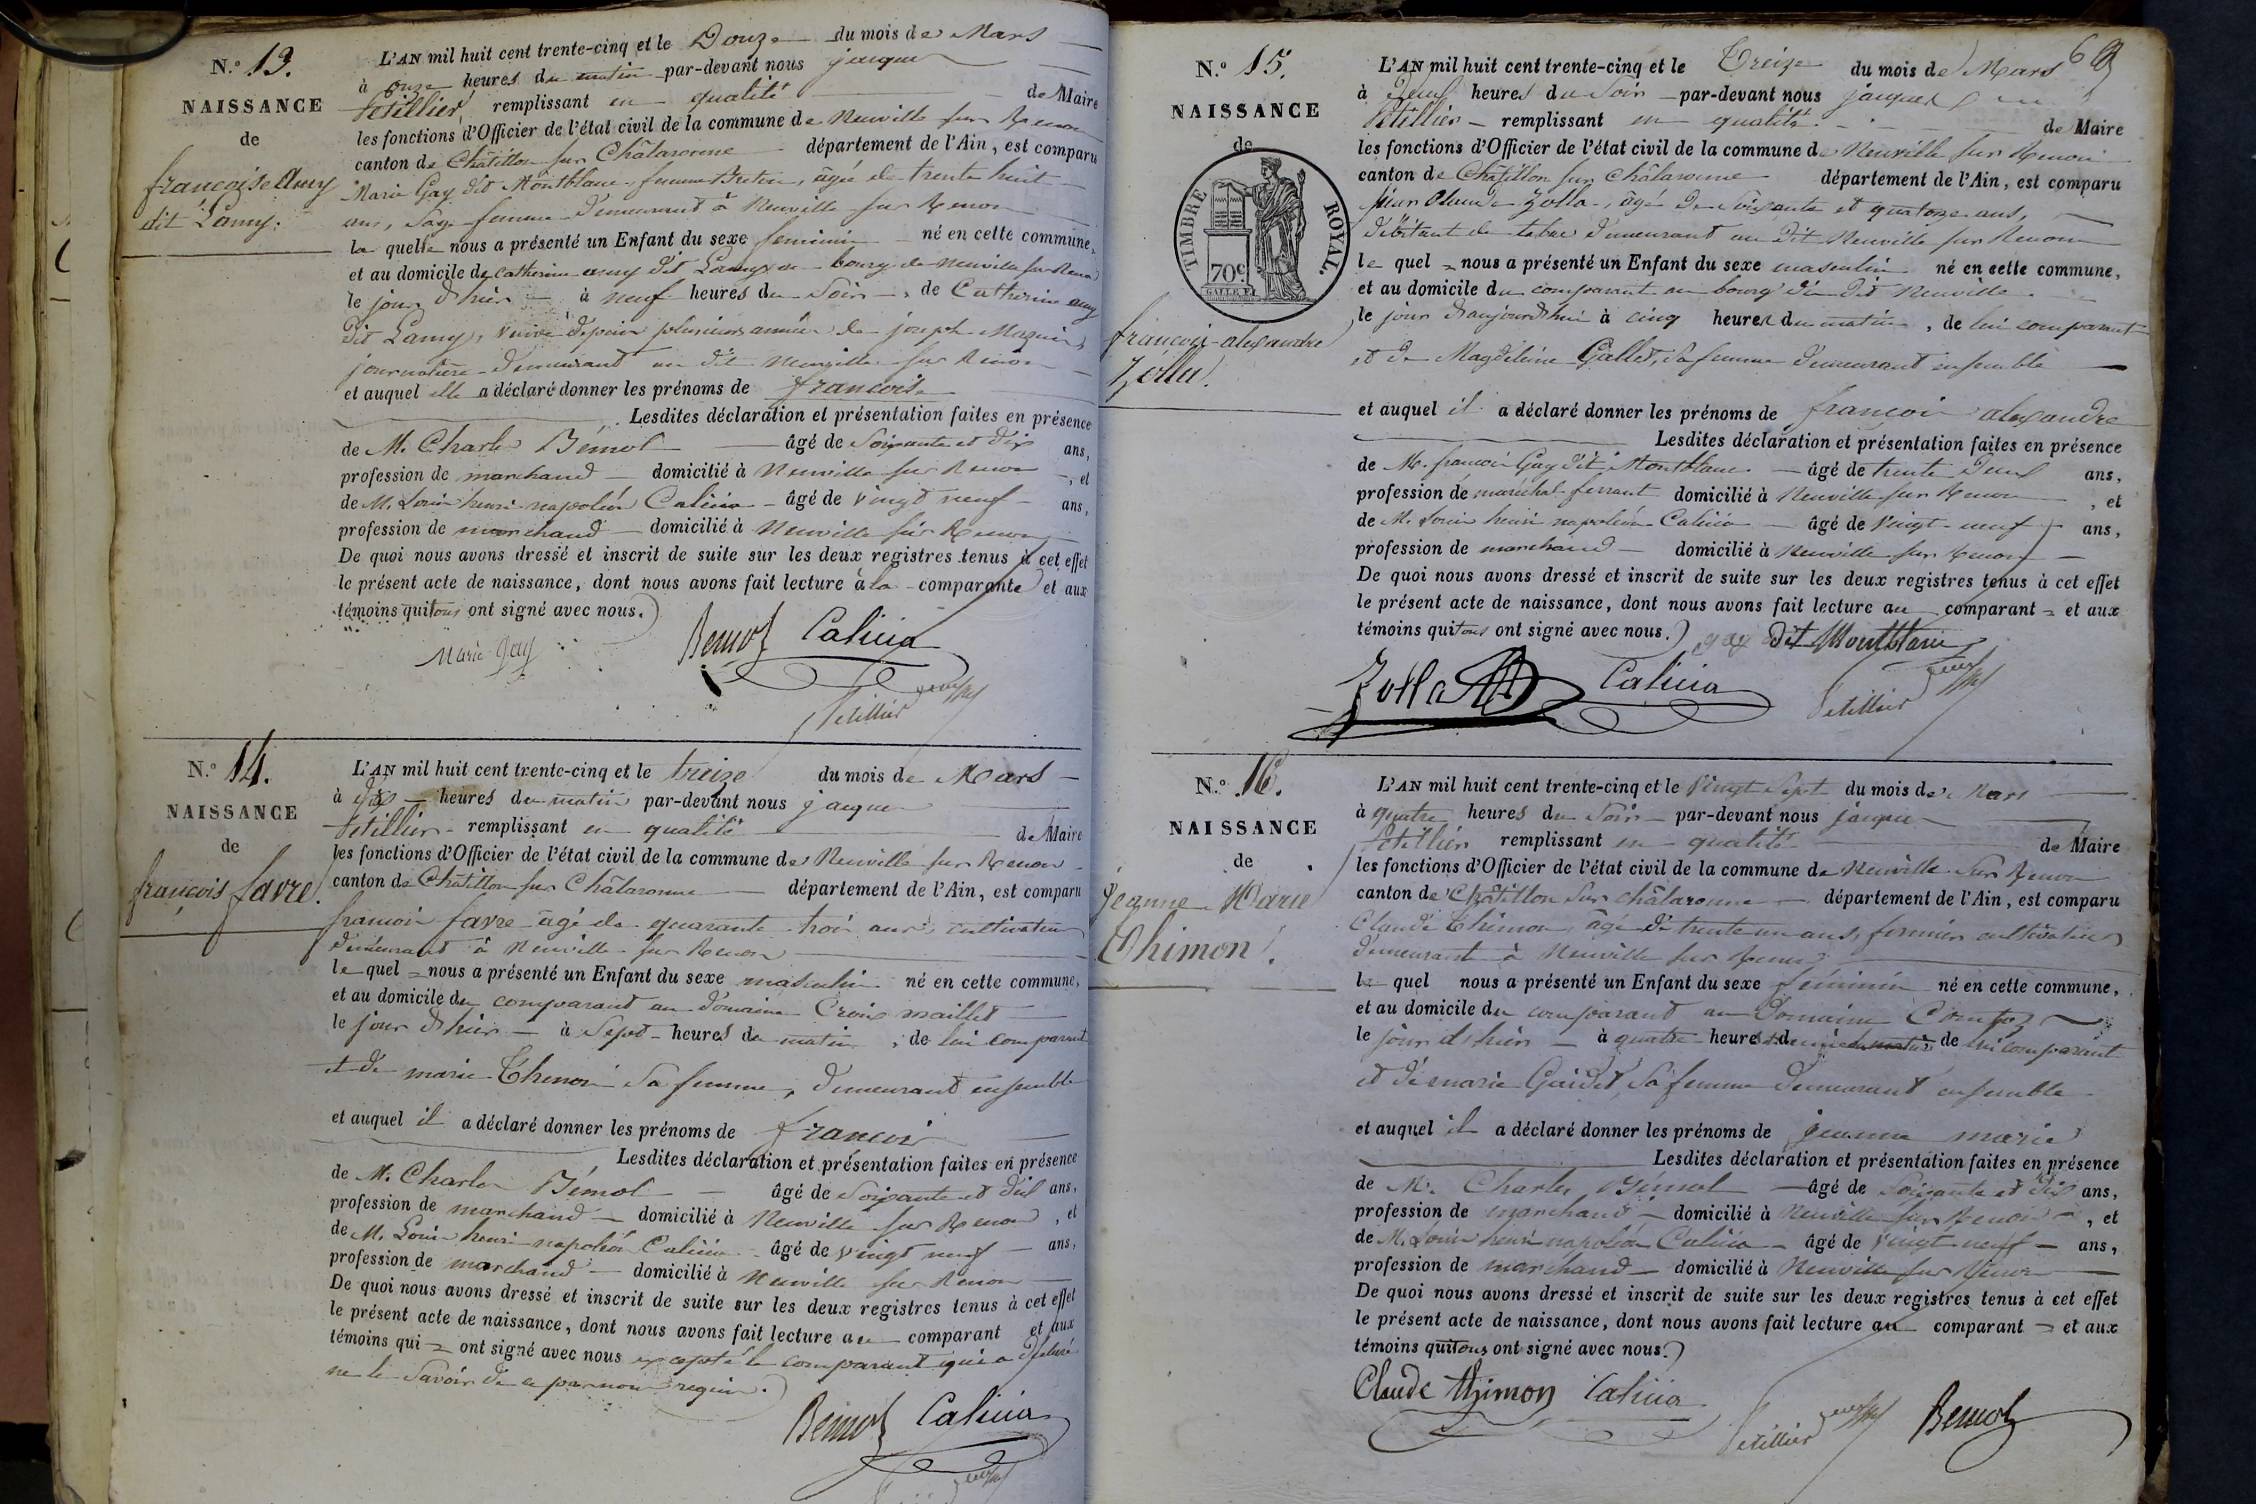 N.º 13.
NAISSANCE
de
françoise Amy
dit Lamy.
L'AN mil huit cent trente-cinq et le Douze du mois de Mars
à onze heures du matin par-devant nous jacques
Petillier remplissant en qualité de Maire
les fonctions d'Officier de l'état civil de la commune de Neuville sur Renon
canton de Châtillon sur Châlaronne département de l'Ain, est comparu
Marie Gay dit Montblanc, femme Breton, âgée de trente huit
ans, Sage femme demeurant à Neuville sur Renon
la quelle nous a présenté un Enfant du sexe feminin né en cette commune,
et au domicile de catherine amy dit Lamy au bourg de Neuville sur Renon
le jour d'hier à neuf heures du Soir, de Catherine amy
dit Lamy, veuve depuis plusieurs années de joseph
journalière demeurant au dit Neuville sur Renon
et auquel elle a déclaré donner les prénoms de françoise
Lesdites déclaration et présentation faites en présence
de M. Charles Bémol âgé de Soixante et dix ans,
profession de marchand domicilié à Neuville sur Renon, et
de M. Louis henri napoléon Calicia âgé de vingt neuf ans,
profession de marchand domicilié à Neuville sur Renon
De quoi nous avons dressé et inscrit de suite sur les deux registres tenus à cet effet
le présent acte de naissance, dont nous avons fait lecture à la comparante et aux
témoins qui tous ont signé avec nous.
Marie Gay Bemol Calicia
Petillier
N.º 14.
NAISSANCE
de
françois favre.
L'AN mil huit cent trente-cinq et le treize du mois de Mars
à dix heures du matin par-devant nous jacques
Petillier remplissant en qualité de Maire
les fonctions d'Officier de l'état civil de la commune de Neuville sur Renon
canton de Châtillon sur Châlaronne département de l'Ain, est comparu
françois favre âgé de quarante trois ans, cultivateur
demeurant à Neuville sur Renon
le quel nous a présenté un Enfant du sexe masculin né en cette commune,
et au domicile du comparant au domaine Croix maillet
le jour d'hier à Sept heures du matin, de lui comparant
et de marie Thenon Sa femme, demeurant ensemble
et auquel il a déclaré donner les prénoms de françois
Lesdites déclaration et présentation faites en présence
de M. Charles Bémol âgé de Soixante et dix ans,
profession de marchand domicilié à Neuville sur Renon, et
de M. Louis henri napoléon Calicia âgé de vingt neuf ans,
profession de marchand domicilié à Neuville sur Renon
De quoi nous avons dressé et inscrit de suite sur les deux registres tenus à cet effet
le présent acte de naissance, dont nous avons fait lecture au comparant et aux
témoins qui ont signé avec nous excepté le comparant qui a déclaré
ne le Savoir de ce par nous requis.
Bemol Calicia
N.º 15.
NAISSANCE
de
TIMBRE ROYAL.
70c
françois alexandre
Zolla.
L'AN mil huit cent trente-cinq et le Treize du mois de Mars
à Deux heures du Soir par-devant nous jacques
Petillier remplissant en qualité de Maire
les fonctions d'Officier de l'état civil de la commune de Neuville sur Renon
canton de Châtillon sur Châlaronne département de l'Ain, est comparu
Claude Zolla, âgé de Soixante et quatorze ans,
débitant de tabac demeurant au dit Neuville sur Renon
le quel nous a présenté un Enfant du sexe masculin né en cette commune,
et au domicile du comparant au bourg du dit Neuville
le jour d'aujourd'hui à cinq heures du matin, de lui comparant
et de Magdeleine Gallet, Sa femme demeurant ensemble
et auquel il a déclaré donner les prénoms de françois alexandre
Lesdites déclaration et présentation faites en présence
de M. françois Gay dit Montblanc âgé de trente Deux ans,
profession de maréchal ferrant domicilié à Neuville sur Renon, et
de M. Louis henri napoléon Calicia âgé de vingt neuf ans,
profession de marchand domicilié à Neuville sur Renon
De quoi nous avons dressé et inscrit de suite sur les deux registres tenus à cet effet
le présent acte de naissance, dont nous avons fait lecture au comparant et aux
témoins qui tous ont signé avec nous.
gay dit Montblanc
Zolla Calicia Petillier
N.º 16.
NAISSANCE
de
Jeanne Marie
Thimon.
L'AN mil huit cent trente-cinq et le Vingt Sept du mois de Mars
à quatre heures du Soir par-devant nous jacques
Petillier remplissant en qualité de Maire
les fonctions d'Officier de l'état civil de la commune de Neuville Sur Renon
canton de Châtillon Sur châlaronne département de l'Ain, est comparu
Claude Thimon, âgé de trente un ans, fermier cultivateur
demeurant à Neuville sur Renon
le quel nous a présenté un Enfant du sexe féminin né en cette commune,
et au domicile du comparant au Domaine
le jour d'hier à quatre heures de lui comparant
et de marie Gaidet, Sa femme demeurant ensemble
et auquel il a déclaré donner les prénoms de jeanne marie
Lesdites déclaration et présentation faites en présence
de M. Charles Bémol âgé de Soixante et Dix ans,
profession de marchand domicilié à Neuville sur Renon, et
de M. Louis henri napoléon Calicia âgé de vingt neuf ans,
profession de marchand domicilié à Neuville sur Renon
De quoi nous avons dressé et inscrit de suite sur les deux registres tenus à cet effet
le présent acte de naissance, dont nous avons fait lecture au comparant et aux
témoins qui tous ont signé avec nous.
Claude thimon Calicia Petillier Bemol